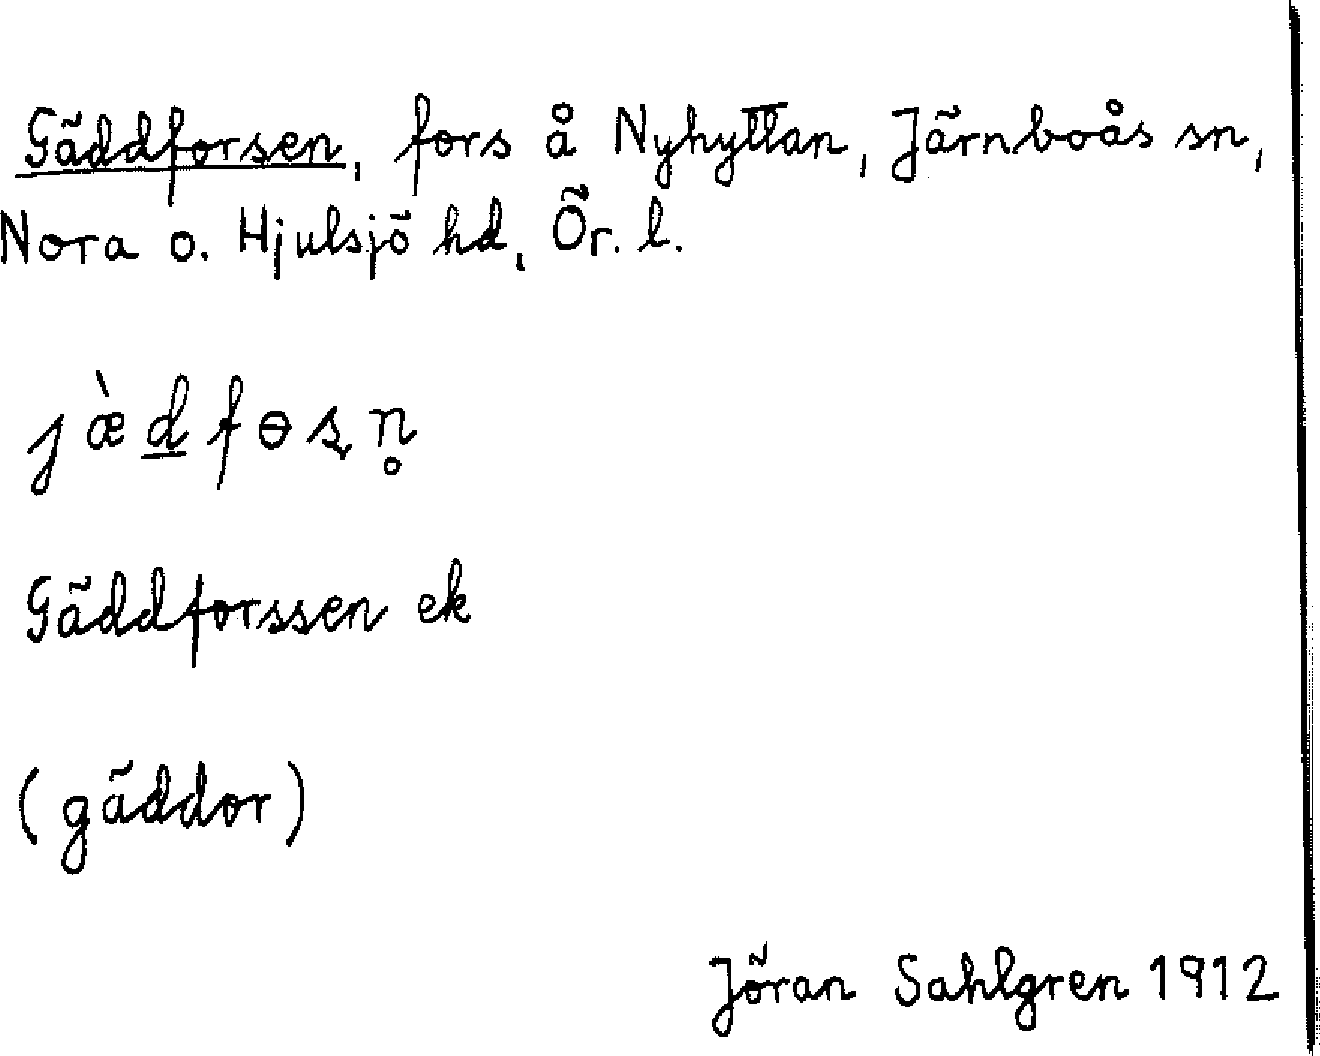 Gäddforsen, fors å Nyhyttan, Järnboås sn,
Nora o. Hjulsjö hd, Ör. l.
jæ̀d̲fɵʂn̥
Gäddforssen ek
(gäddor)
Jöran Sahlgren 1912